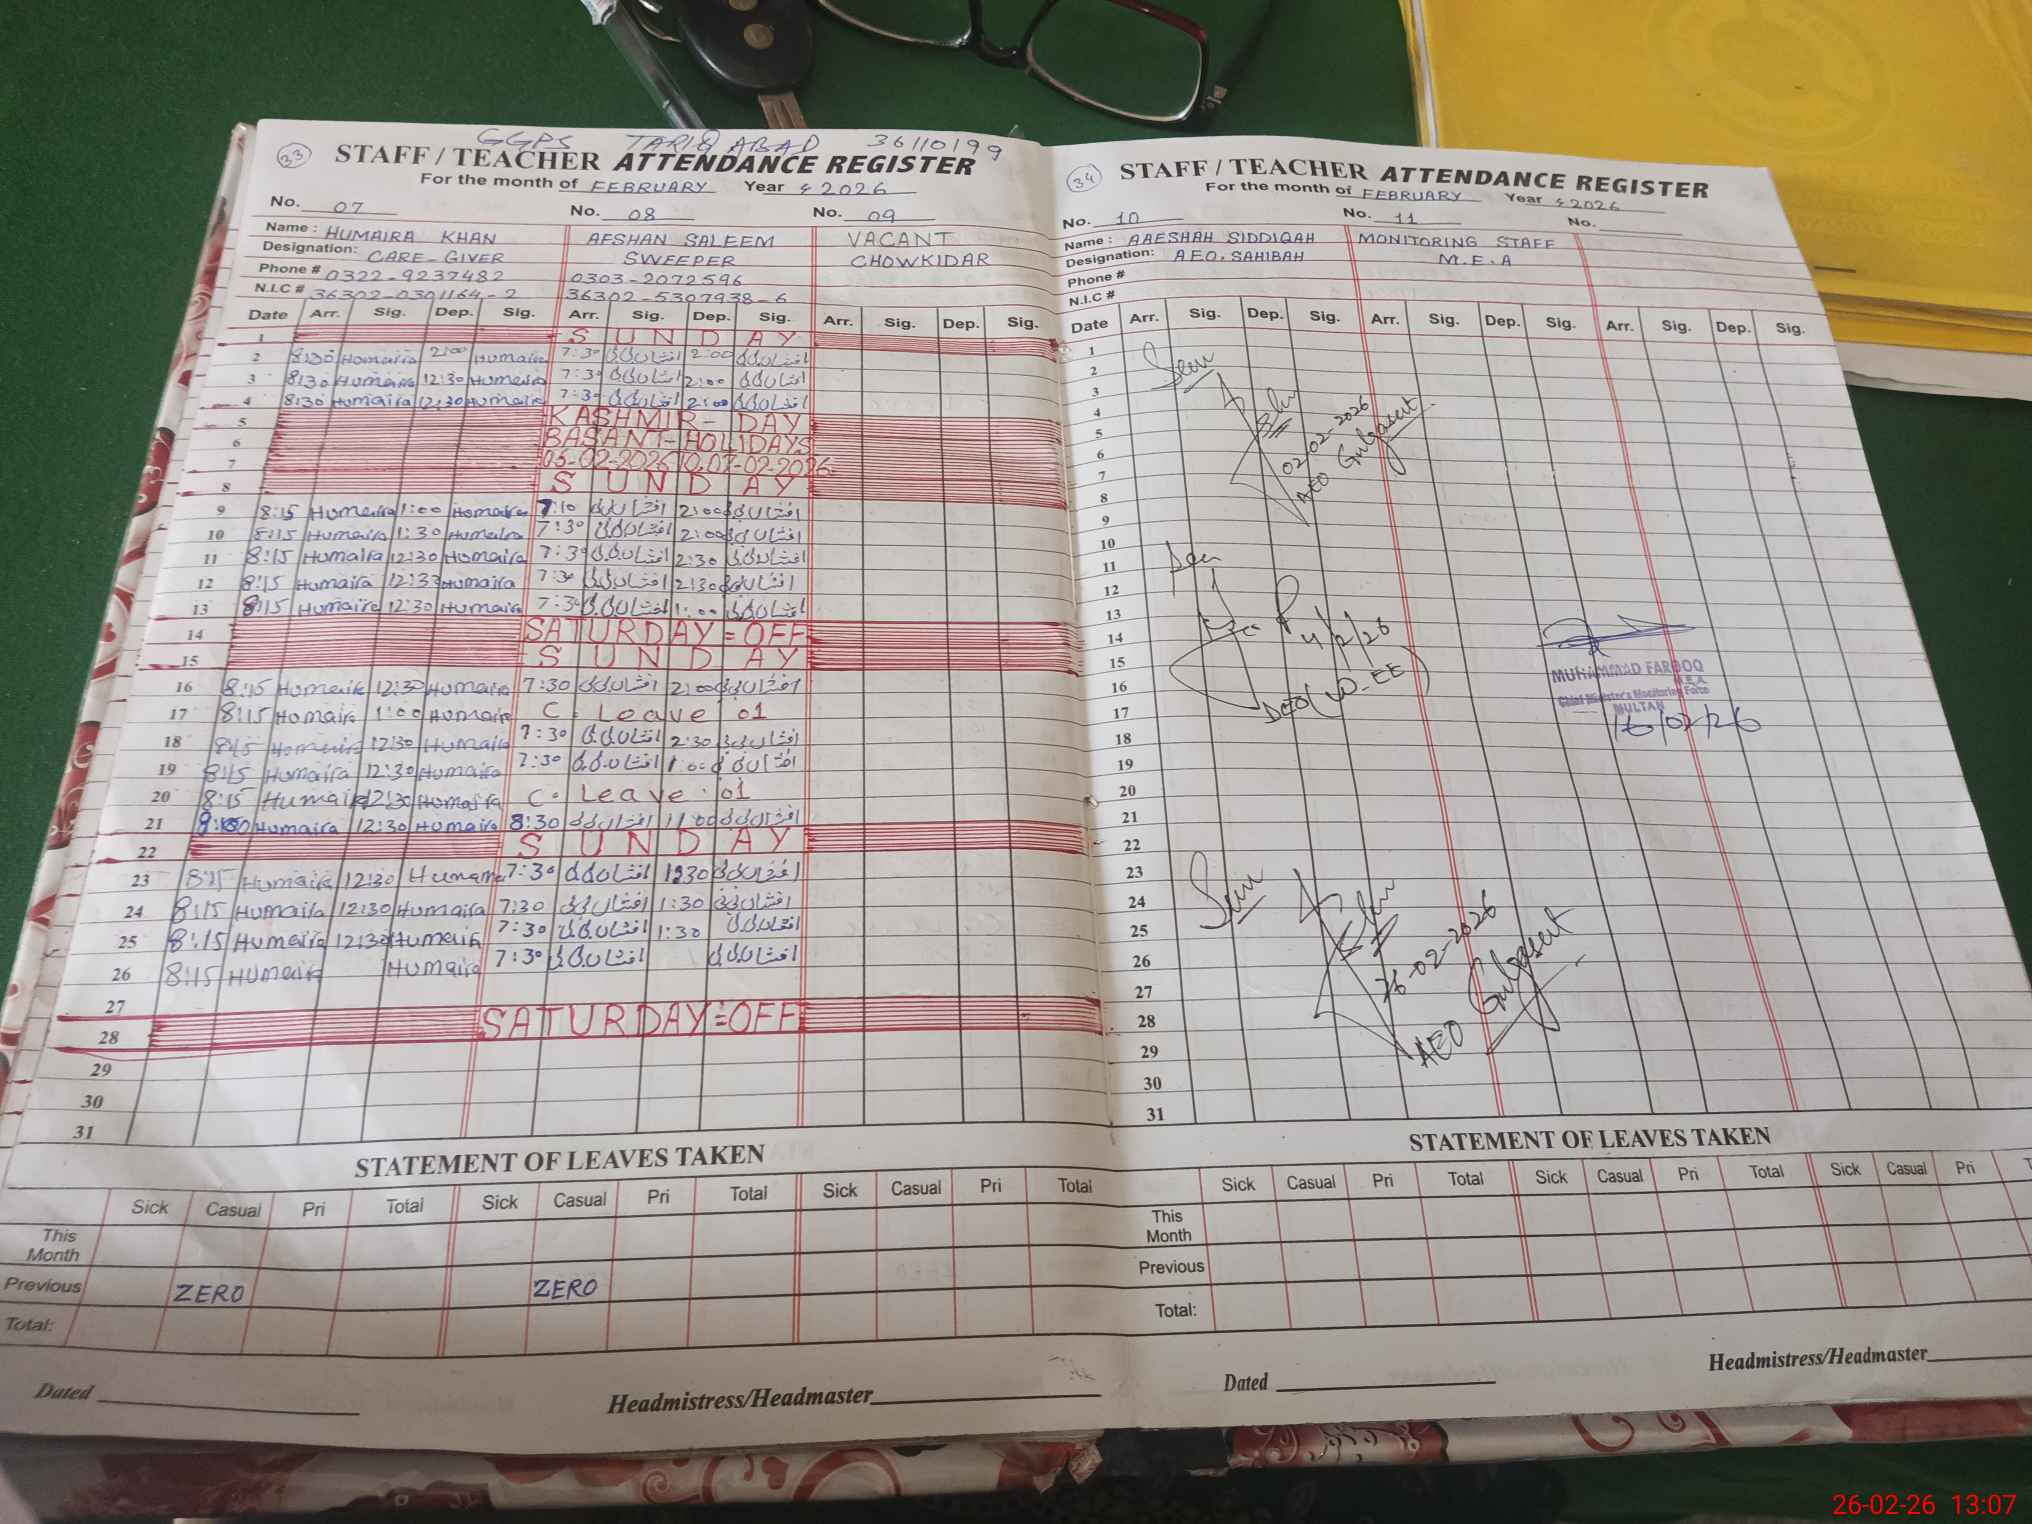 GGPS TARIQ ABAD 36110199
33 STAFF / TEACHER ATTENDANCE REGISTER
For the month of FEBRUARY Year 2026
No. 07 No. 08 No. 09
Name : HUMAIRA KHAN AFSHAN SALEEM VACANT
Designation: CARE-GIVER SWEEPER CHOWKIDAR
Phone # 0322-9237482 0303-2072596
N.I.C # 36302-0301164-2 36302-5307938-6
Date Arr. Sig. Dep. Sig. Arr. Sig. Dep. Sig. Arr. Sig. Dep. Sig.
1 SUNDAY
2 8:30 Homaira 2:00 Humaira 7:30 افشاں بی بی 2:00 افشاں بی بی
3 8:30 Humaira 12:30 Humaira 7:30 افشاں بی بی 2:00 افشاں بی بی
4 8:30 Humaira 12:30 Humaira 7:30 افشاں بی بی 2:00 افشاں بی بی
5 KASHMIR-DAY
6 BASANT-HOLIDAYS
7 05-02-2026 TO 07-02-2026
8 SUNDAY
9 8:15 Humaira 1:00 Homaira 7:10 افشاں بی بی 2:00 افشاں بی بی
10 8:15 Humaira 1:30 Humaira 7:30 افشاں بی بی 2:00 افشاں بی بی
11 8:15 Humaira 12:30 Homaira 7:30 افشاں بی بی 2:30 افشاں بی بی
12 8:15 Humaira 12:33 Humaira 7:30 افشاں بی بی 2:30 افشاں بی بی
13 8:15 Humaira 12:30 Humaira 7:30 افشاں بی بی 1:00 افشاں بی بی
14 SATURDAY = OFF
15 SUNDAY
16 8:15 Humaira 12:30 Humaira 7:30 افشاں بی بی 2:00 افشاں بی بی
17 8:15 Homaira 1:00 Humaira C. Leave 01
18 8:15 Homeira 12:30 Humaira 7:30 افشاں بی بی 2:30 افشاں بی بی
19 8:15 Humaira 12:30 Humaira 7:30 افشاں بی بی 1:00 افشاں بی بی
20 8:15 Humaira 12:30 Humaira C. Leave 01
21 Humaira 12:30 Humaira 8:30 افشاں بی بی 11:00 افشاں بی بی
22 SUNDAY
23 8:15 Humaira 12:30 Humaira 7:30 افشاں بی بی افشاں بی بی
24 8:15 Humaira 12:30 Humaira 7:30 افشاں بی بی 1:30 افشاں بی بی
25 8:15 Humaira 12:30 Humaira 7:30 افشاں بی بی 1:30 افشاں بی بی
26 8:15 Humaira Humaira 7:30 افشاں بی بی افشاں بی بی
27
28 SATURDAY = OFF
29
30
31
STATEMENT OF LEAVES TAKEN
Sick Casual Pri Total Sick Casual Pri Total Sick Casual Pri Total
This Month
Previous ZERO ZERO
Total:
Dated Headmistress/Headmaster
34 STAFF / TEACHER ATTENDANCE REGISTER
For the month of FEBRUARY Year 2026
No. 10 No. 11 No.
Name : AAESHAH SIDDIQAH MONITORING STAFF
Designation: AEO. SAHIBAH M.E.A
Phone #
N.I.C #
Date Arr. Sig. Dep. Sig. Arr. Sig. Dep. Sig. Arr. Sig. Dep. Sig.
1
2
3
4
5
6
7
8
9
10
11
12
13
14
15
16
17
18
19
20
21
22
23
24
25
26
27
28
29
30
31
Seen
02-02-2026
AEO Gulgasht
Seen
11/2/26
DEO (W-EE)
MUHAMMAD FAROOQ
M.E.A.
Chief Minister's Monitoring Force
MULTAN
16/02/26
Seen
26-02-2026
AEO Gulgasht
STATEMENT OF LEAVES TAKEN
Sick Casual Pri Total Sick Casual Pri Total Sick Casual Pri
This Month
Previous
Total:
Dated Headmistress/Headmaster
26-02-26 13:07